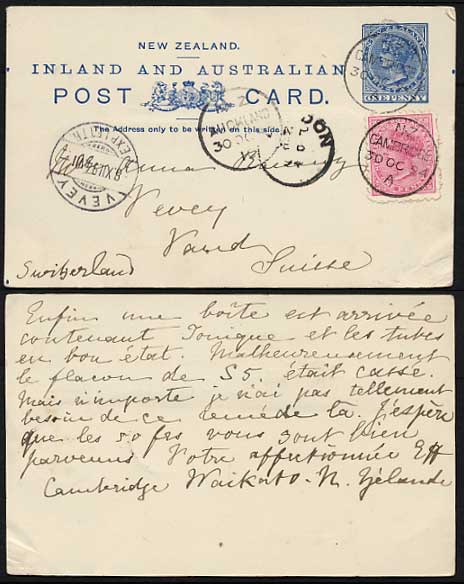 NEW ZEALAND.
INLAND AND AUSTRALIAN
POST CARD.
The Address only to be written on this side.
ONE PENNY
N.Z
CAMBRIDGE
30 OC 94
A
N.Z
AUCKLAND
30 OC
VEVEY
Anna
Vevey
Vaud
Switzerland Suisse
Enfin une boîte est arrivée
contenant Tonique et les tubes
en bon état. Malheureusement
le flacon de S5 était cassé.
Mais n'importe je n'ai pas tellement
besoin de ce remède là. J'espère
que les 50 frs vous sont bien
parvenus Votre affectionnée
Cambridge Waikato - N. Zélande